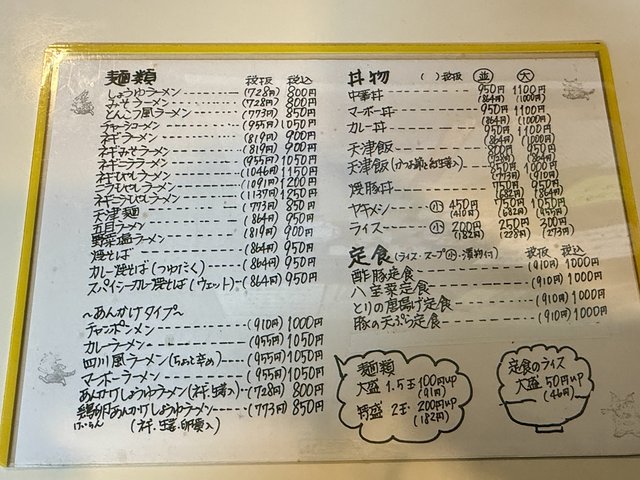 麺類 税抜 税込
しょうゆラーメン (728円) 800円
みそラーメン (728円) 800円
とんこつ風ラーメン (773円) 850円
チャーシューメン (955円) 1050円
ネギラーメン (819円) 900円
ネギみそラーメン (819円) 900円
ネギニララーメン (955円) 1050円
ネギもやしラーメン (1046円) 1150円
ニラもやしラーメン (1091円) 1200円
ネギニラもやしラーメン (1137円) 1250円
天津麺 (773円) 850円
五目ラーメン (864円) 950円
野菜塩ラーメン (819円) 900円
焼そば (864円) 950円
カレー焼そば(つゆだく) (864円) 950円
スパイシーカレー焼そば(ウェット) (864円) 950円
〜あんかけタイプ〜
チャンポンメン (910円) 1000円
カレーラーメン (955円) 1050円
四川風ラーメン(ちょっと辛め) (955円) 1050円
マーボーラーメン (955円) 1050円
あんかけしょうゆラーメン(ネギ、生姜入) (728円) 800円
鶏卵あんかけしょうゆラーメン (773円) 850円
けいらん (ネギ、生姜、卵黄入)
丼物 ( )税抜 並 大
中華丼 950円 1100円
(864円) (1000円)
マーボー丼 950円 1100円
(864円) (1000円)
カレー丼 950円 1100円
(864円) (1000円)
天津飯 800円 950円
(728円) (864円)
天津飯 850円 1000円
(773円) (910円)
焼豚丼 750円 950円
(682円) (864円)
ヤキメシ 小 450円 750円 1050円
(410円) (682円) (955円)
ライス 小 200円 250円 300円
(182円) (228円) (273円)
定食(ライス・スープ小・漬物付) 税抜 税込
酢豚定食 (910円) 1000円
八宝菜定食 (910円) 1000円
とりの唐揚げ定食 (910円) 1000円
豚の天ぷら定食 (910円) 1000円
麺類
大盛 1.5玉 100円UP
(91円)
特盛 2玉 200円UP
(182円)
定食のライス
大盛 50円UP
(46円)